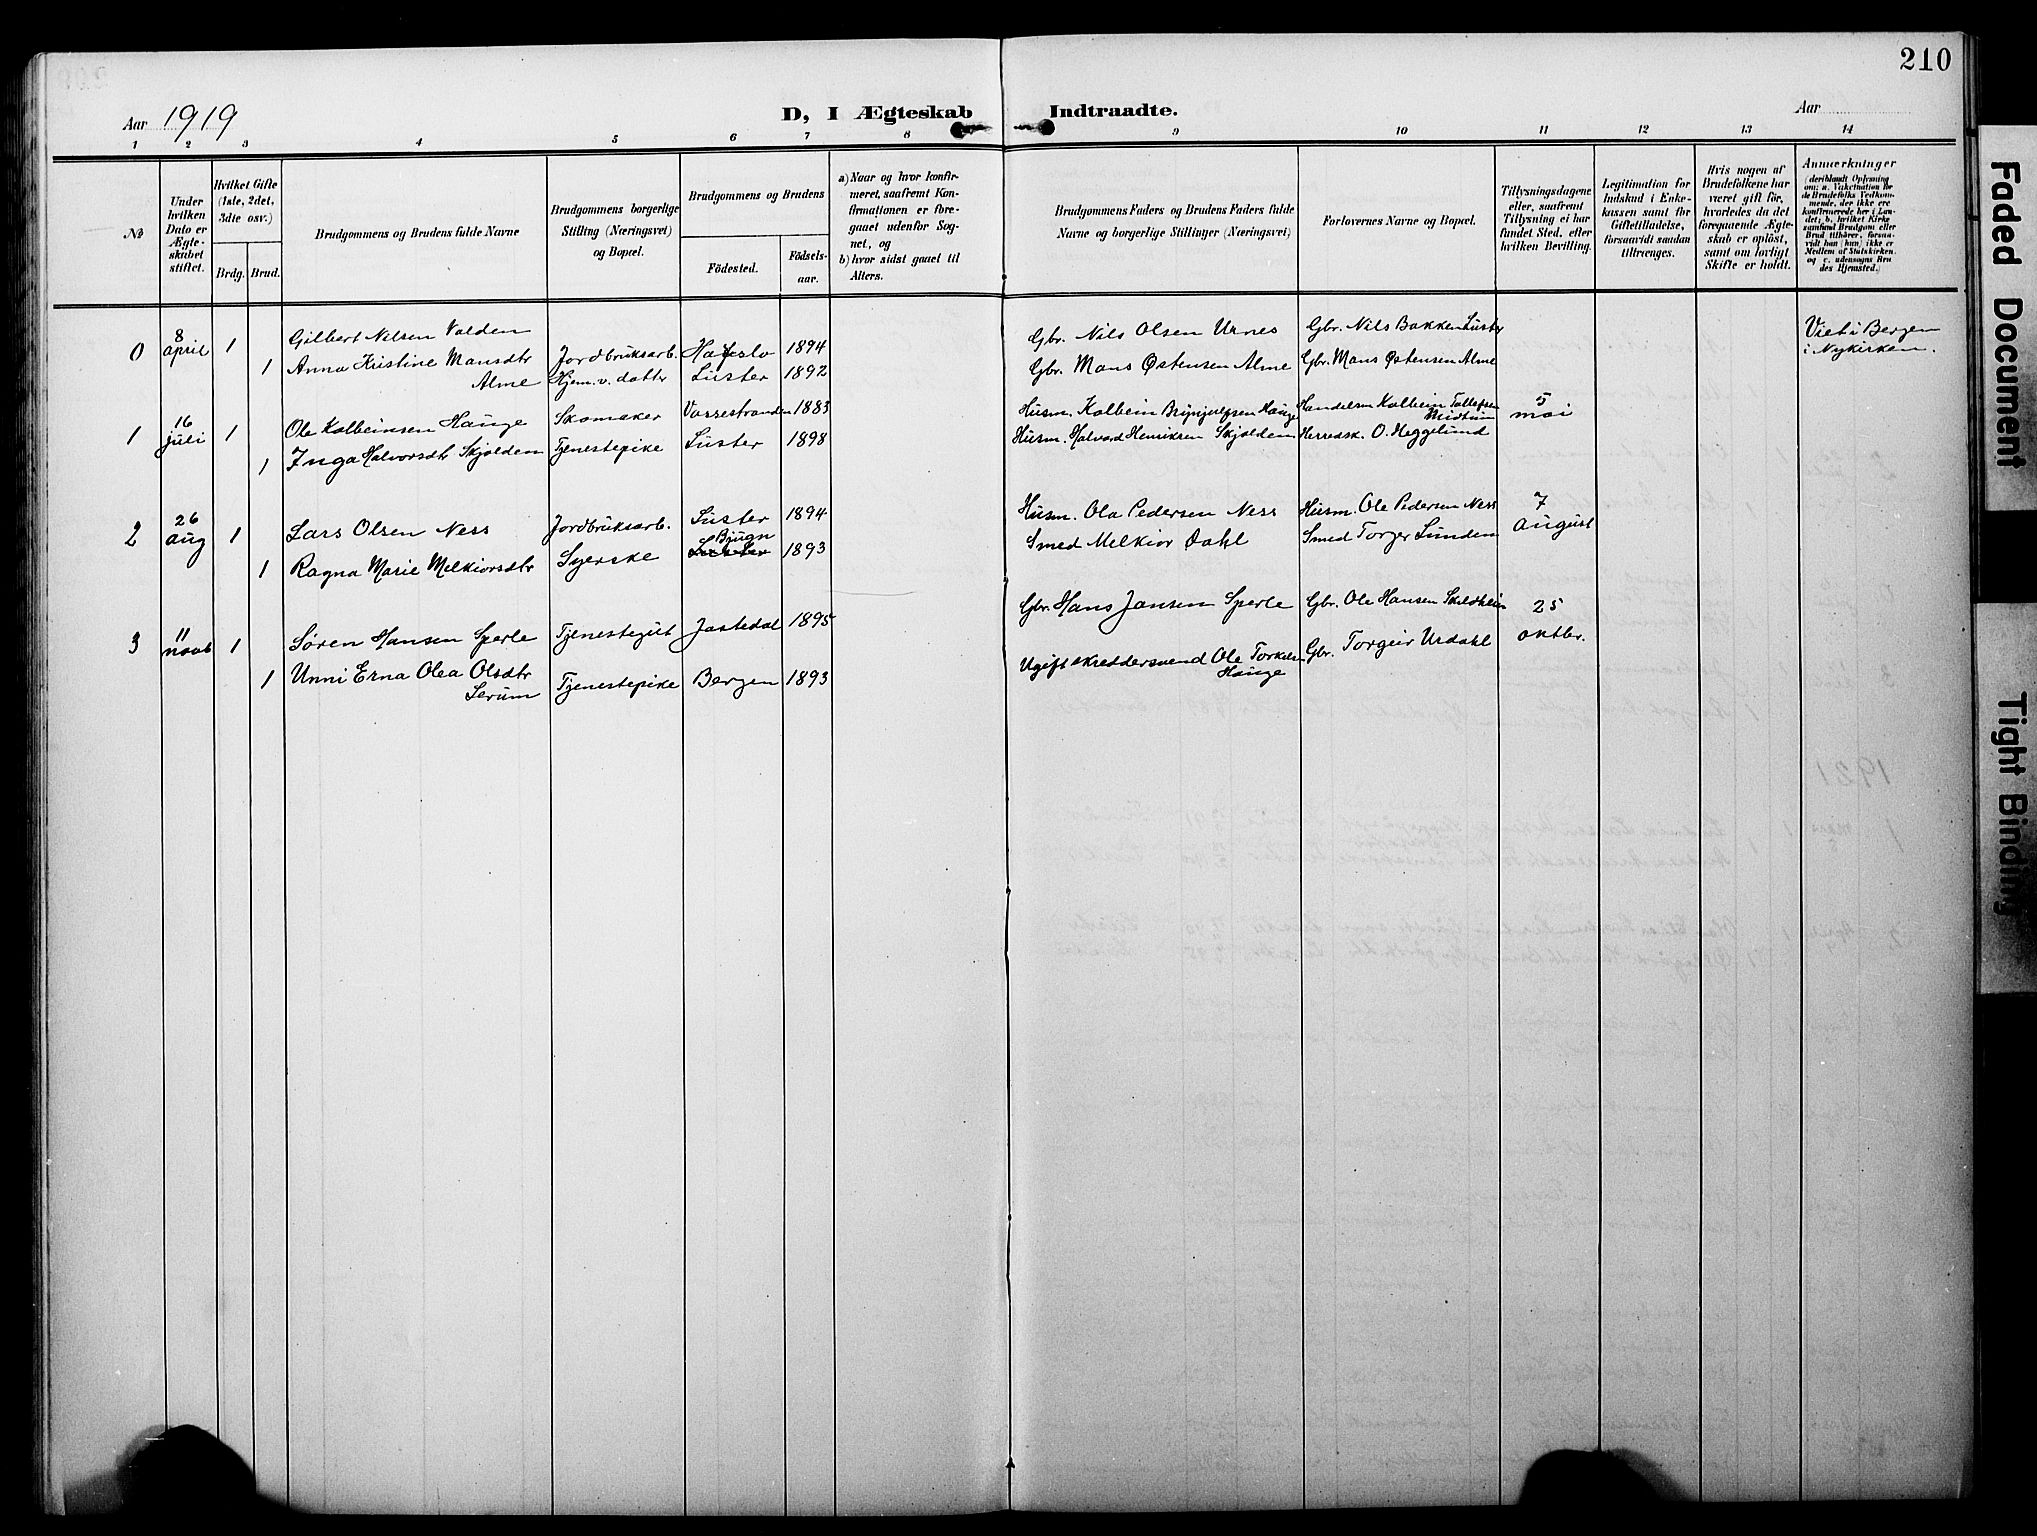 210
Aar 1919
D, I Ægteskab Indtraadte.
Aar
1 2 3 4 5 6 7 8 9 10 11 12 13 14
№
Under hvilken Dato er Ægteskabet stiftet.
Hvilket Gifte (1ste, 2det, 3dte osv.)
Brdg. Brud.
Brudgommens og Brudens fulde Navne
Brudgommens borgerlige Stilling (Næringsvei) og Bopæl.
Brudgommens og Brudens
Fødested.
Fødselsaar.
a) Naar og hvor konfirmeret, saafremt Konfirmationen er foregaaet udenfor Sognet, og
b) hvor sidst gaaet til Alters.
Brudgommens Faders og Brudens Faders fulde Navne og borgerlige Stillinger (Næringsvei)
Forlovernes Navne og Bopæl.
Tillysningsdagene eller, saafremt Tillysning ei har fundet Sted, efter hvilken Bevilling.
Legitimation for Indskud i Enkekassen samt for Giftetilladelse, forsaavidt saadan tiltrænges.
Hvis nogen af Brudefolkene har været gift før, hvorledes da det foregaaende Ægteskab er opløst, samt om lovligt Skifte er holdt.
Anmærkninger (deriblandt Oplysning om: a. Vakcination for de Brudefolks Vedkommende, der ikke ere konfirmerede her i Landet; b. hvilket Kirkesamfund Brudgom eller Brud tilhører, forsaavidt han (hun) ikke er Medlem af Statskirken, og c. udensogns Brudes Hjemsted.)
0 8 april 1 Gilbert Nilsen Valden Jordbruksarb. Hafslo 1894 Gbr. Nils Olsen Urnes Gbr. Nils Bakken Luster Viet i Bergen
i Nykirken.
1 Anna Kristine Mansdtr Alme Hjem.v. datter Luster 1892 Gbr. Mons Østensen Alme Gbr. Mons Østensen Alme
1 16 juli 1 Ole Kolbeinsen Hauge Skomaker Vossestranden 1883 Husm. Kolbein Brynjulfsen Hauge Handelsm Kolbein Tollefsen Midtun 5 mai
1 Inga Halvorsdtr Skjolden Tjenestepike Luster 1898 Husm. Halvard Henriksen Skjolden Herredsk. O. Heggelund
2 26 aug 1 Lars Olsen Ness Jordbruksarb. Luster 1894 Husm. Ola Pedersen Ness Husm. Ole Pedersen Ness 7 august
1 Ragna Marie Melkiorsdtr Syerske Bjugn 1893 Smed Melkior Dahl Smed Torger Lunden
3 11 novb 1 Søren Hansen Sperle Tjenestegut Jostedal 1895 Gbr. Hans Jansen Sperle Gbr. Ole Hansen Skildheim 25 oktbr.
1 Unni Erna Olea Olsdtr Lerum Tjenestepike Bergen 1893 Ugift skreddersvend Ole Torkelsen Hauge Gbr. Torgeir Urdahl
Faded Document
Tight Binding